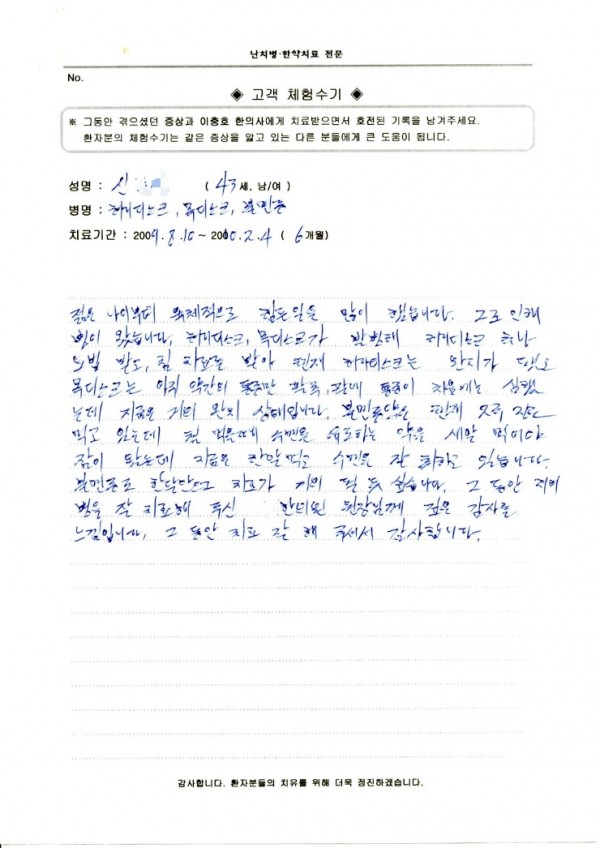 난치병·한약치료 전문
No.
◈ 고객 체험수기 ◈
※ 그동안 겪으셨던 증상과 이충호 한의사에게 치료받으면서 호전된 기록을 남겨주세요.
환자분의 체험수기는 같은 증상을 앓고 있는 다른 분들에게 큰 도움이 됩니다.
성명 : 신 ( 43세, 남/여 )
병명 : 허리디스크, 목디스크, 불면증
치료기간 : 2009.8.10 ~ 2010.2.4 ( 6개월)
젊은 나이부터 육체적으로 힘든일을 많이 했습니다. 그로 인해
병이 왔습니다. 허리디스크, 목디스크가 발병해 허리디스크
받고, 침 치료로 받아 현재 허리디스크는 완치가 됐고
목디스크는 아직 약간의 통증만 팔목, 팔에 통증이 처음에는 심했
는데 지금은 거의 완치 상태입니다. 불면증약은 현재
먹고 있는데 수면을 유도하는 약을 세알 먹어야
잠이 왔는데 지금은 한알먹고 수면을 잘 취하고 있습니다.
불면증도 한달만으로 치료가 거의 될 듯 싶습니다. 그 동안 저의
병을 잘 치료해 주신 한의원 원장님께 깊은 감사를
느낍니다. 그 동안 치료 잘 해 주셔서 감사합니다.
감사합니다. 환자분들의 치유를 위해 더욱 정진하겠습니다.